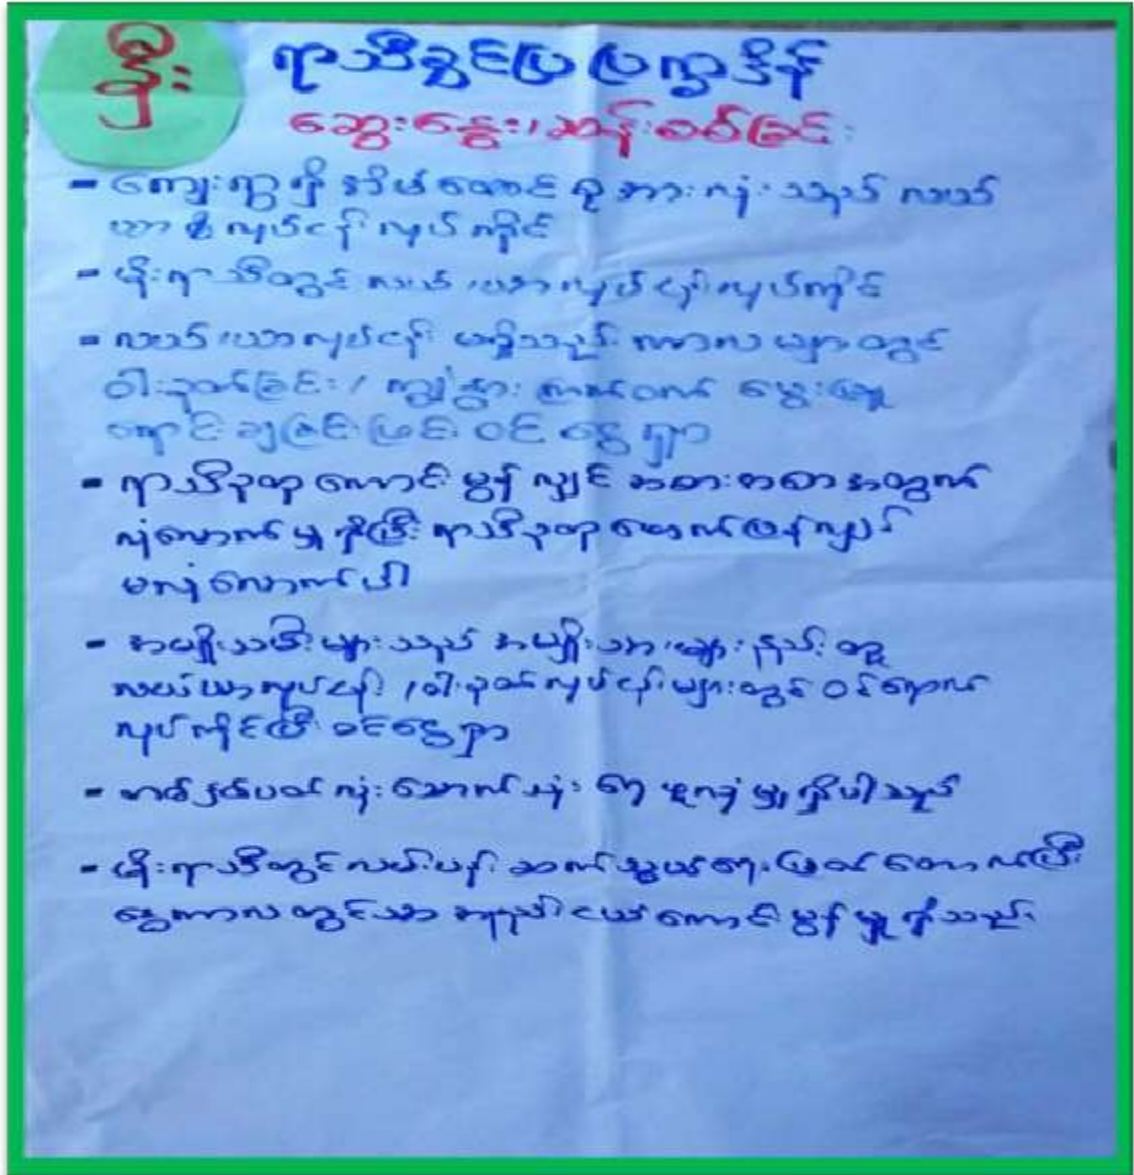 ဦး
ရာသီခွင်ပြပြက္ခဒိန်
ဆွေးနွေး၊ဆန်းစစ်ခြင်း
- ကျေးရွာရှိ အိမ်ထောင်စု အားလုံးသည် လယ်
ယာစိုက်လုပ်ငန်းလုပ်ကိုင်
- မိုးရာသီတွင် လယ်ယာလုပ်ငန်းလုပ်ကိုင်
- လယ်ယာလုပ်ငန်း မရှိသည့် ကာလများတွင်
ဝါးခုတ်ခြင်း / ကျွဲနွား ကြက်ဝက် မွေးမြူ
ရောင်းချခြင်းဖြင့် ဝင်ငွေရှာ
- ရာသီဥတုကောင်းမွန်လျှင် အစားအစာအတွက်
လုံလောက်မှုရှိပြီး ရာသီဥတုဖောက်ပြန်လျှင်
မလုံလောက်ပါ
- အမျိုးသမီးများသည် အမျိုးသားများနည်းတူ
လယ်ယာလုပ်ငန်း / ဝါးခုတ်လုပ်ငန်းများတွင် ဝင်ရောက်
လုပ်ကိုင်ပြီးဝင်ငွေရှာ
- တစ်နှစ်ပတ်လုံး သောက်သုံးရေ ဖူလုံမှုရှိပါသည်
- မိုးရာသီတွင်လမ်းပန်းဆက်သွယ်ရေးပြတ်တောက်ပြီး
နွေကာလတွင်သာ အနည်းငယ်ကောင်းမွန်မှုရှိသည်